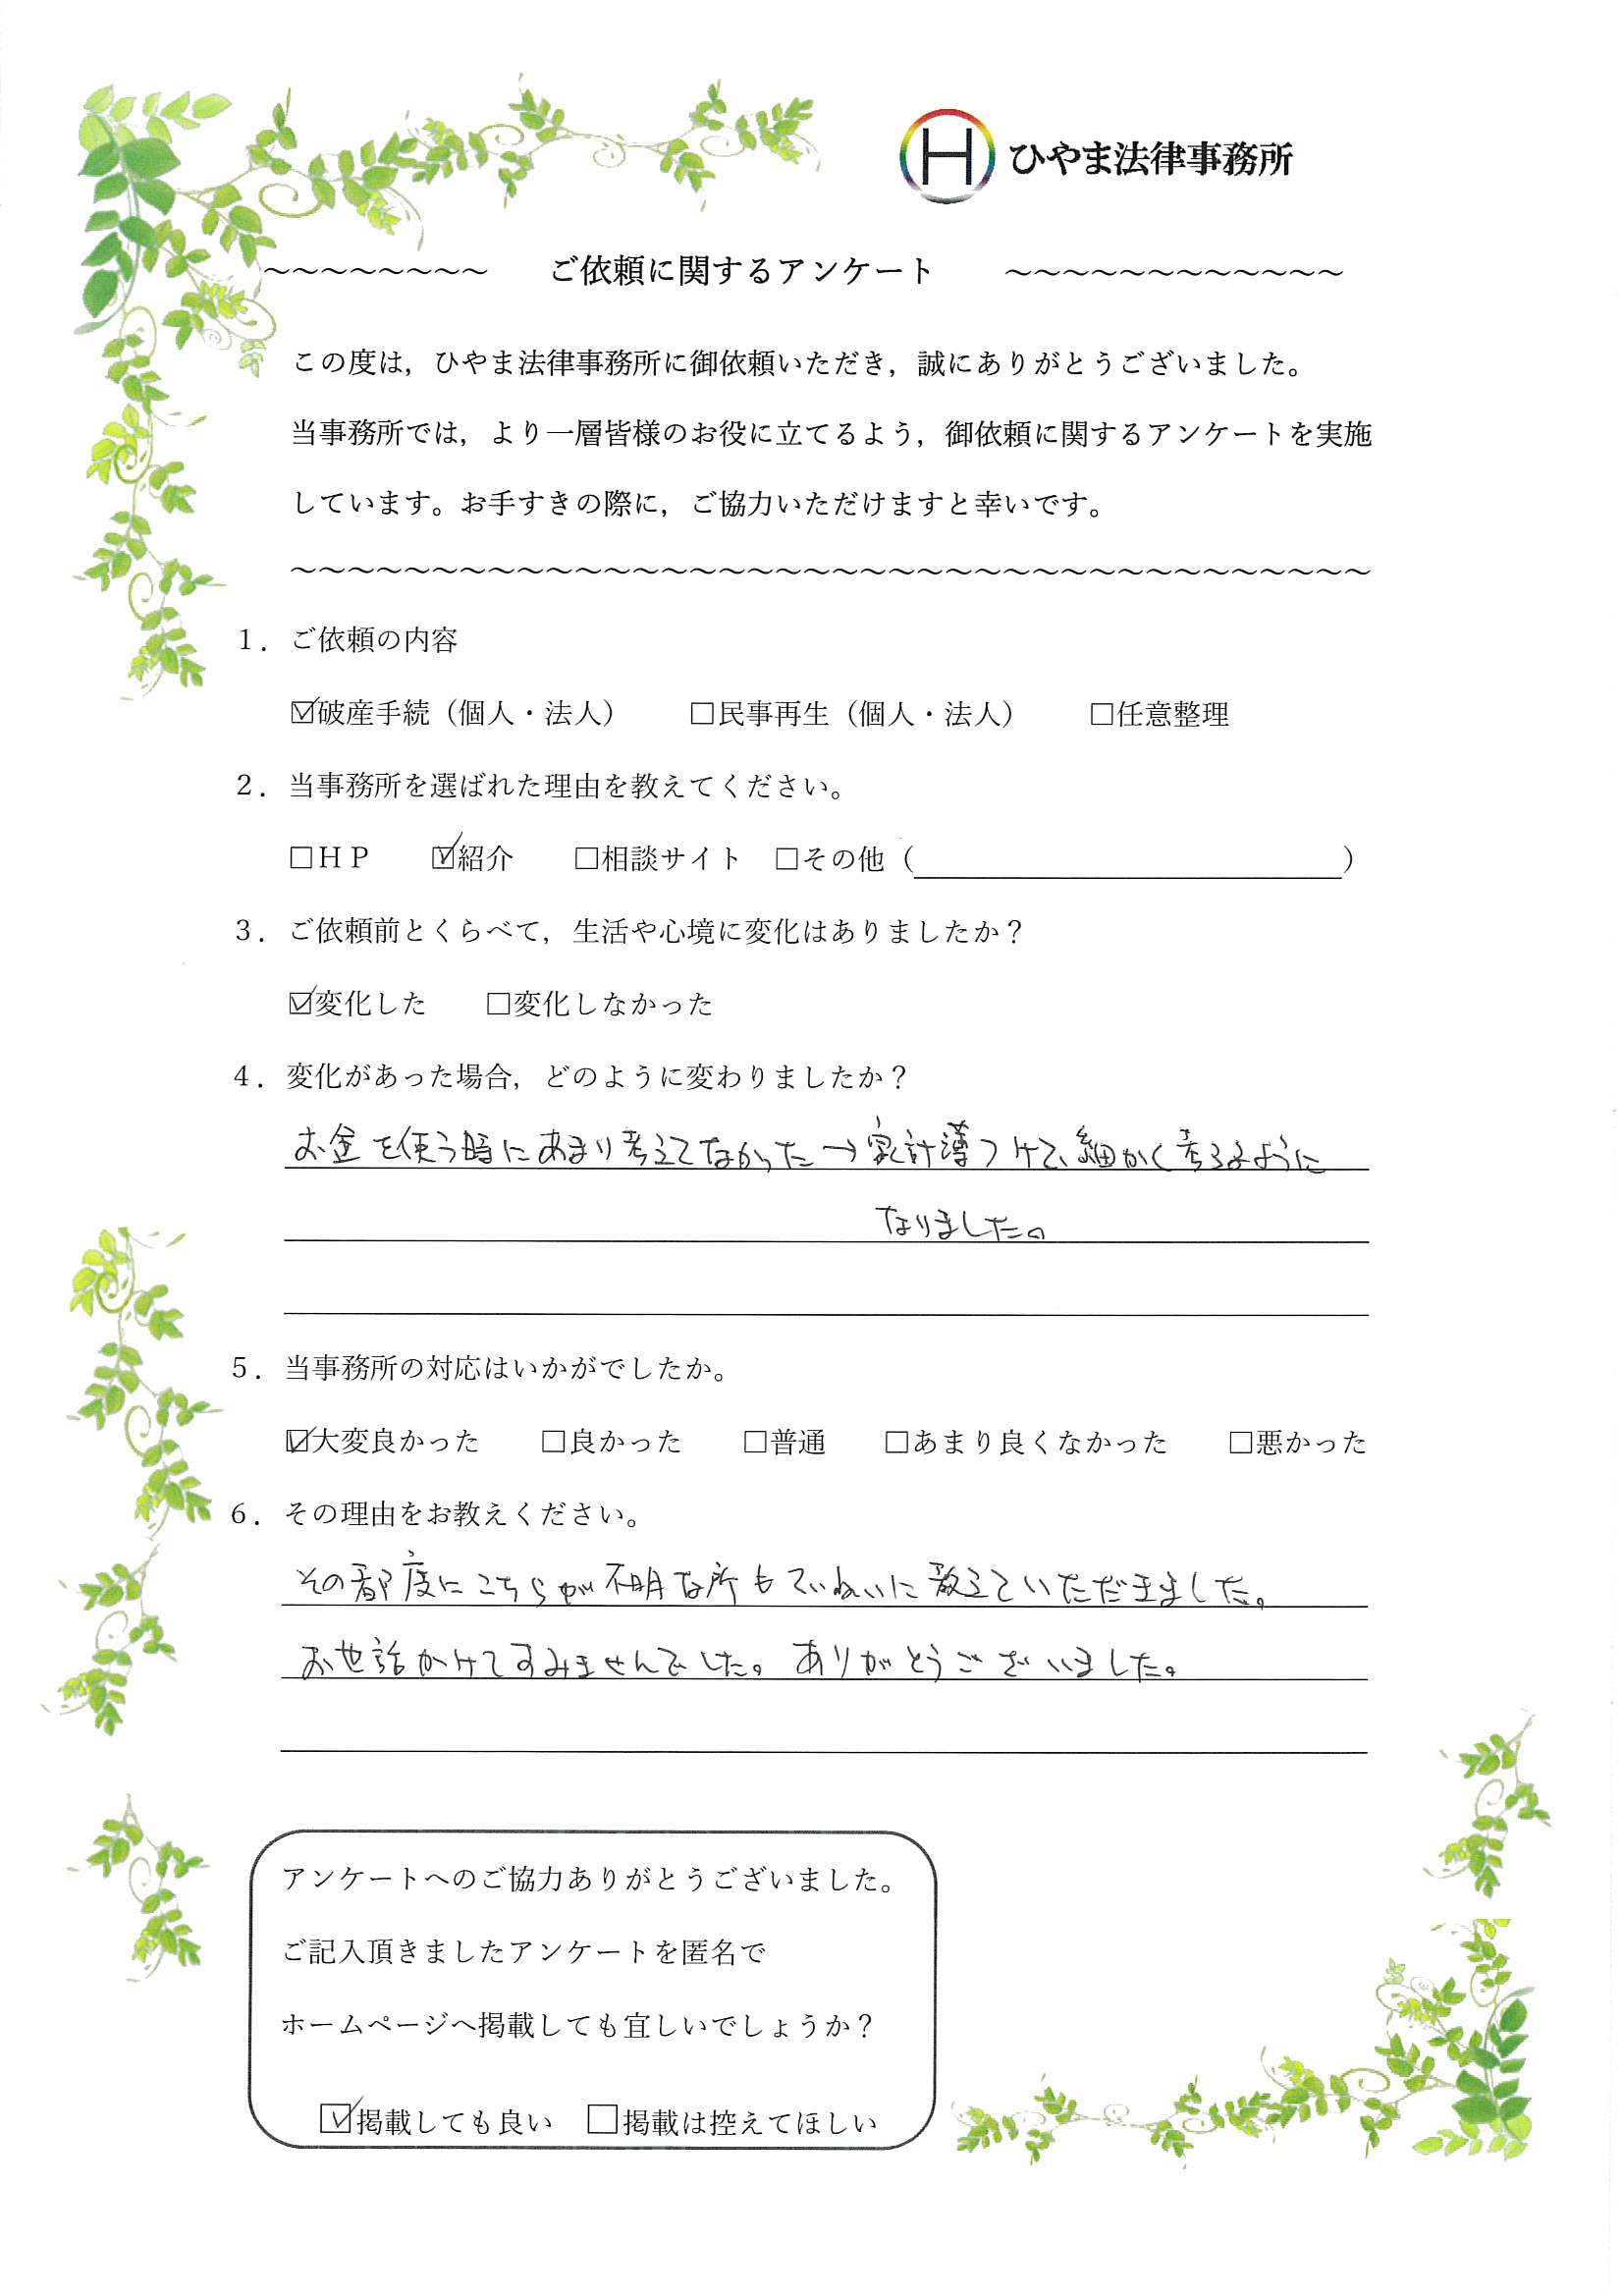 H ひやま法律事務所
~~~~~~~~ ご依頼に関するアンケート ~~~~~~~~~~~~
この度は，ひやま法律事務所に御依頼いただき，誠にありがとうございました。
当事務所では，より一層皆様のお役に立てるよう，御依頼に関するアンケートを実施
しています。お手すきの際に，ご協力いただけますと幸いです。
~~~~~~~~~~~~~~~~~~~~~~~~~~~~~~~~~~~~~~
１．ご依頼の内容
☑破産手続（個人・法人） □民事再生（個人・法人） □任意整理
２．当事務所を選ばれた理由を教えてください。
□ＨＰ ☑紹介 □相談サイト □その他（　　　）
３．ご依頼前とくらべて，生活や心境に変化はありましたか？
☑変化した □変化しなかった
４．変化があった場合，どのように変わりましたか？
お金を使う時にあまり考えてなかった→家計薄つけて、細かく考るように
なりました。
５．当事務所の対応はいかがでしたか。
☑大変良かった □良かった □普通 □あまり良くなかった □悪かった
６．その理由をお教えください。
その都度にこちらが不明な所もていねいに教えていただきました。
お世話かけてすみませんでした。ありがとうございました。
アンケートへのご協力ありがとうございました。
ご記入頂きましたアンケートを匿名で
ホームページへ掲載しても宜しいでしょうか？
☑掲載しても良い □掲載は控えてほしい